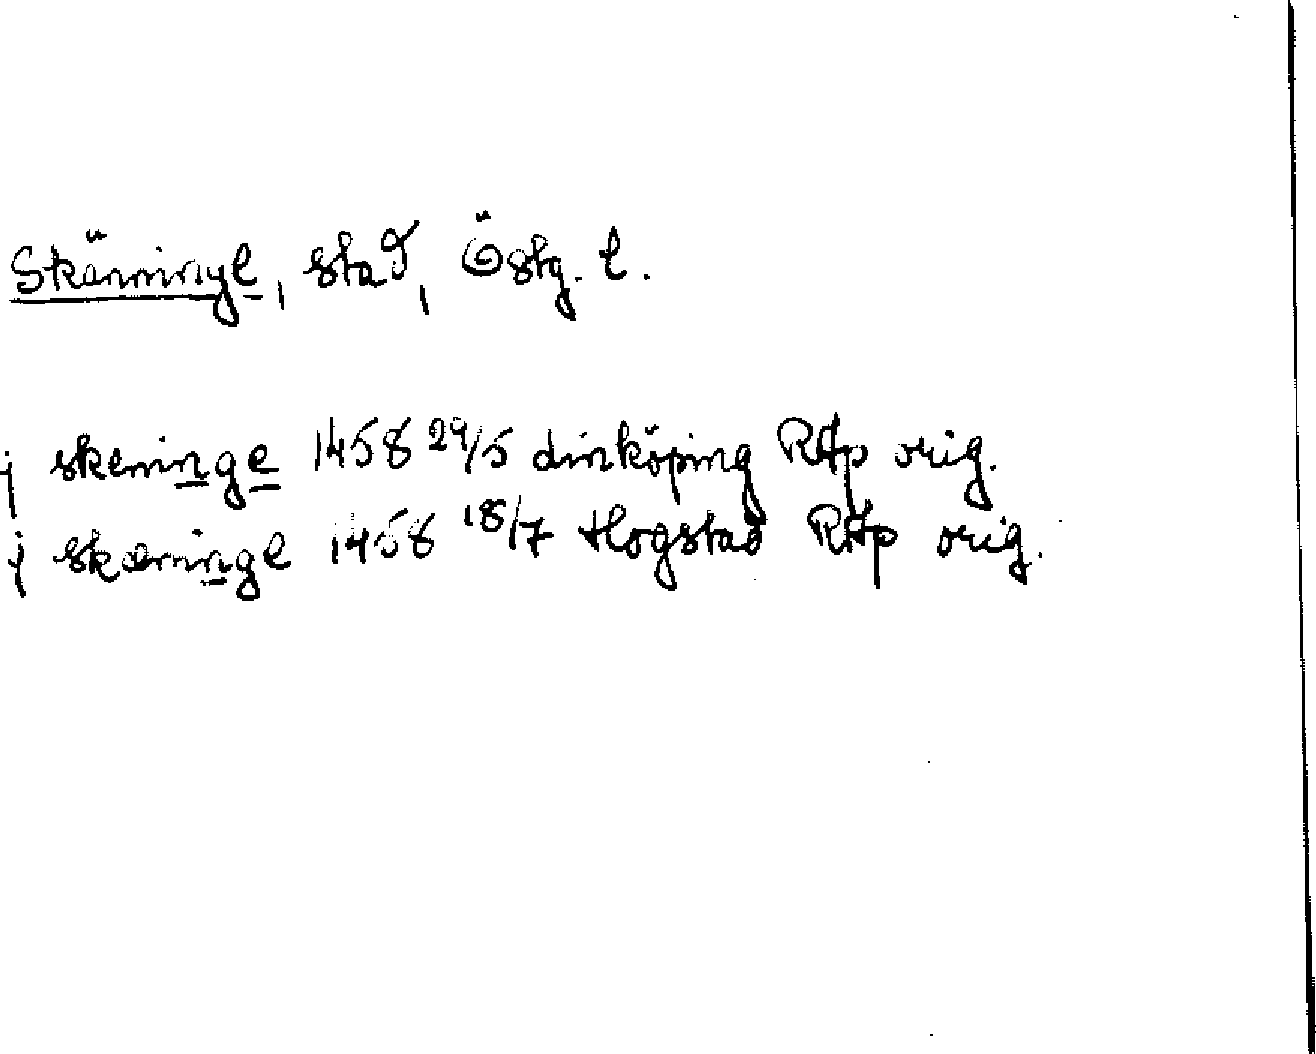 Skänninge, stad, Östg. l.
j skeninge 1458 29/5 Linköping RAp orig.
j skæninge 1458 18/7 Hogstad RAp orig.